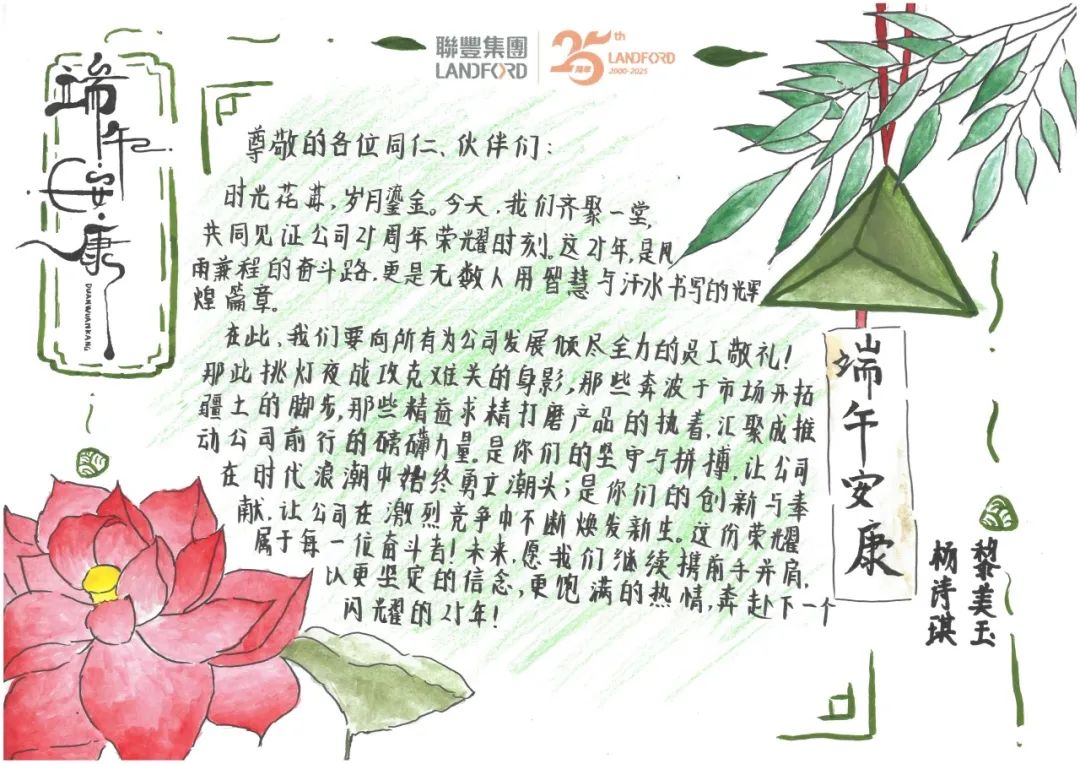 聯豐集團
LANDFORD
25th
周年
LANDFORD
2000-2025
端午安康
DUANWUANKANG
尊敬的各位同仁、伙伴们：
时光花苒，岁月鎏金。今天，我们齐聚一堂，
共同见证公司25周年荣耀时刻。这25年，是风
雨兼程的奋斗路，更是无数人用智慧与汗水书写的辉
煌篇章。
在此，我们要向所有为公司发展倾尽全力的员工敬礼！
那此挑灯夜战攻克难关的身影，那些奔波于市场开拓
疆土的脚步，那些精益求精打磨产品的执着，汇聚成推
动公司前行的磅礴力量。是你们的坚守与拼搏，让公司
在时代浪潮中始终勇立潮头；是你们的创新与奉
献，让公司在激烈竞争中不断焕发新生。这份荣耀
属于每一位奋斗者！未来，愿我们继续携前手并肩，
以更坚定的信念，更饱满的热情，奔赴下一个
闪光耀的25年！
端午安康
黎美玉
杨诗琪